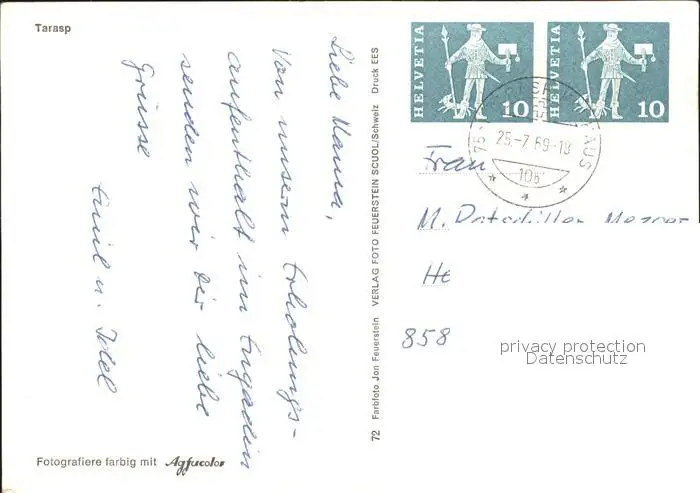 Tarasp
Liebe Mama,
Von unserm Erholungs-
aufenthalt im Engadin
senden wir dir liebe
Grüsse
Emil u. Idel
Fotografiere farbig mit Agfacolor
72 Farbfoto Jon Feuerstein VERLAG FOTO FEUERSTEIN SCUOL/Schweiz Druck EES
HELVETIA 10
HELVETIA 10
25.-7.69-18
Frau
M.
858
privacy protection
Datenschutz